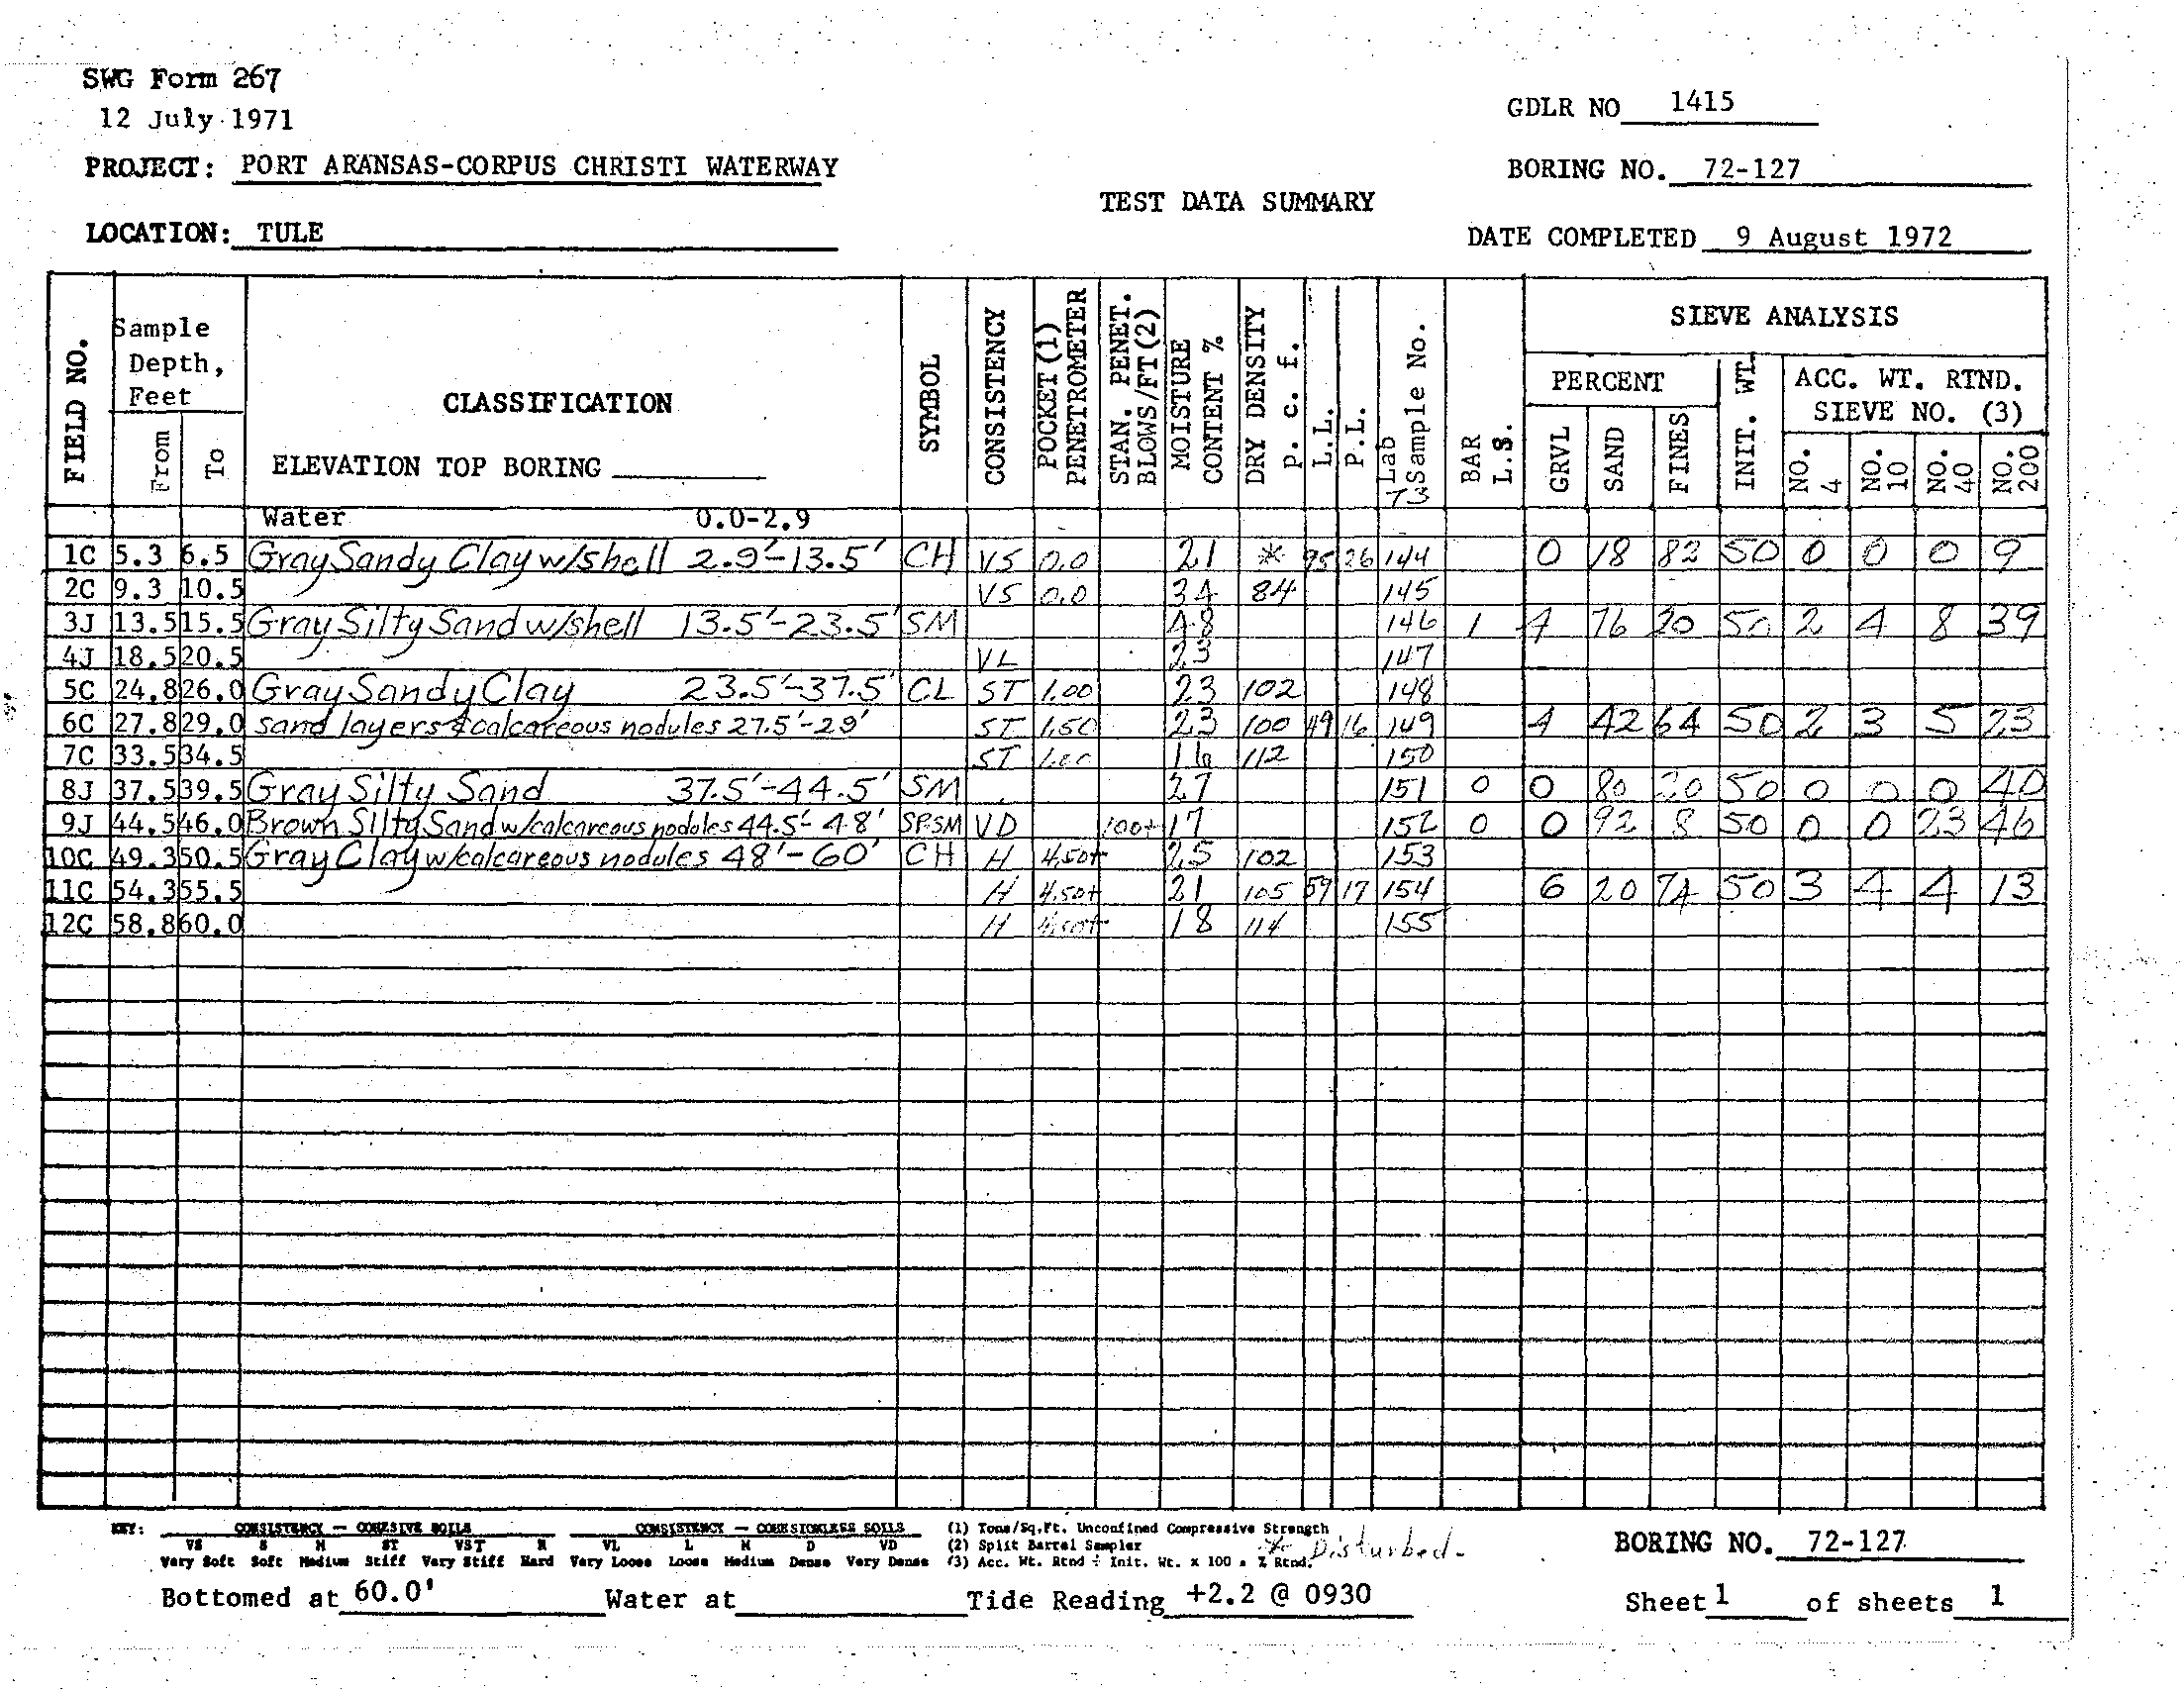 SWG Form 267
12 July 1971
GDLR NO 1415
PROJECT: PORT ARANSAS-CORPUS CHRISTI WATERWAY
BORING NO. 72-127
TEST DATA SUMMARY
LOCATION: TULE
DATE COMPLETED 9 August 1972
FIELD NO.
Sample Depth, Feet
From
To
CLASSIFICATION
ELEVATION TOP BORING
SYMBOL
CONSISTENCY
POCKET (1) PENETROMETER
STAN. PENET. BLOWS/FT (2)
MOISTURE CONTENT %
DRY DENSITY p. c. f.
L.L.
P.L.
Lab Sample No.
73
BAR L.S.
SIEVE ANALYSIS
PERCENT
GRVL
SAND
FINES
INIT. WT.
ACC. WT. RTND. SIEVE NO. (3)
NO. 4
NO. 10
NO. 40
NO. 200
Water 0.0-2.9
1C 5.3 6.5 Gray Sandy Clay w/shell 2.9'-13.5' CH VS 0.0 21 * 95 26 144 0 18 82 50 0 0 0 9
2C 9.3 10.5 VS 0.0 34 84 145
3J 13.5 15.5 Gray Silty Sand w/shell 13.5'-23.5' SM 48 146 1 4 76 20 50 2 4 8 39
4J 18.5 20.5 VL 23 147
5C 24.8 26.0 Gray Sandy Clay 23.5'-37.5' CL ST 1.00 23 102 148
6C 27.8 29.0 sand layers & calcareous nodules 27.5'-29' ST 1.50 23 100 49 16 149 4 42 64 50 2 3 5 23
7C 33.5 34.5 ST 16 112 150
8J 37.5 39.5 Gray Silty Sand 37.5'-44.5' SM 27 151 0 0 80 20 50 0 0 0 40
9J 44.5 46.0 Brown Silty Sand w/calcareous nodules 44.5'-48' SP-SM VD 100+ 17 152 0 0 92 8 50 0 0 23 46
10C 49.3 50.5 Gray Clay w/calcareous nodules 48'-60' CH H 4.50+ 25 102 153
11C 54.3 55.5 H 4.50+ 21 105 59 17 154 6 20 74 50 3 4 4 13
12C 58.8 60.0 H 4.50+ 18 114 155
KEY: CONSISTENCY — COHESIVE SOILS CONSISTENCY — COHESIONLESS SOILS (1) Tons/Sq.Ft. Unconfined Compressive Strength
VS S M ST VST H VL L M D VD (2) Split Barrel Sampler
Very Soft Soft Medium Stiff Very Stiff Hard Very Loose Loose Medium Dense Very Dense (3) Acc. Wt. Rtnd ÷ Init. Wt. x 100 = % Rtnd.
* Disturbed.
BORING NO. 72-127
Bottomed at 60.0' Water at Tide Reading +2.2 @ 0930 Sheet 1 of sheets 1